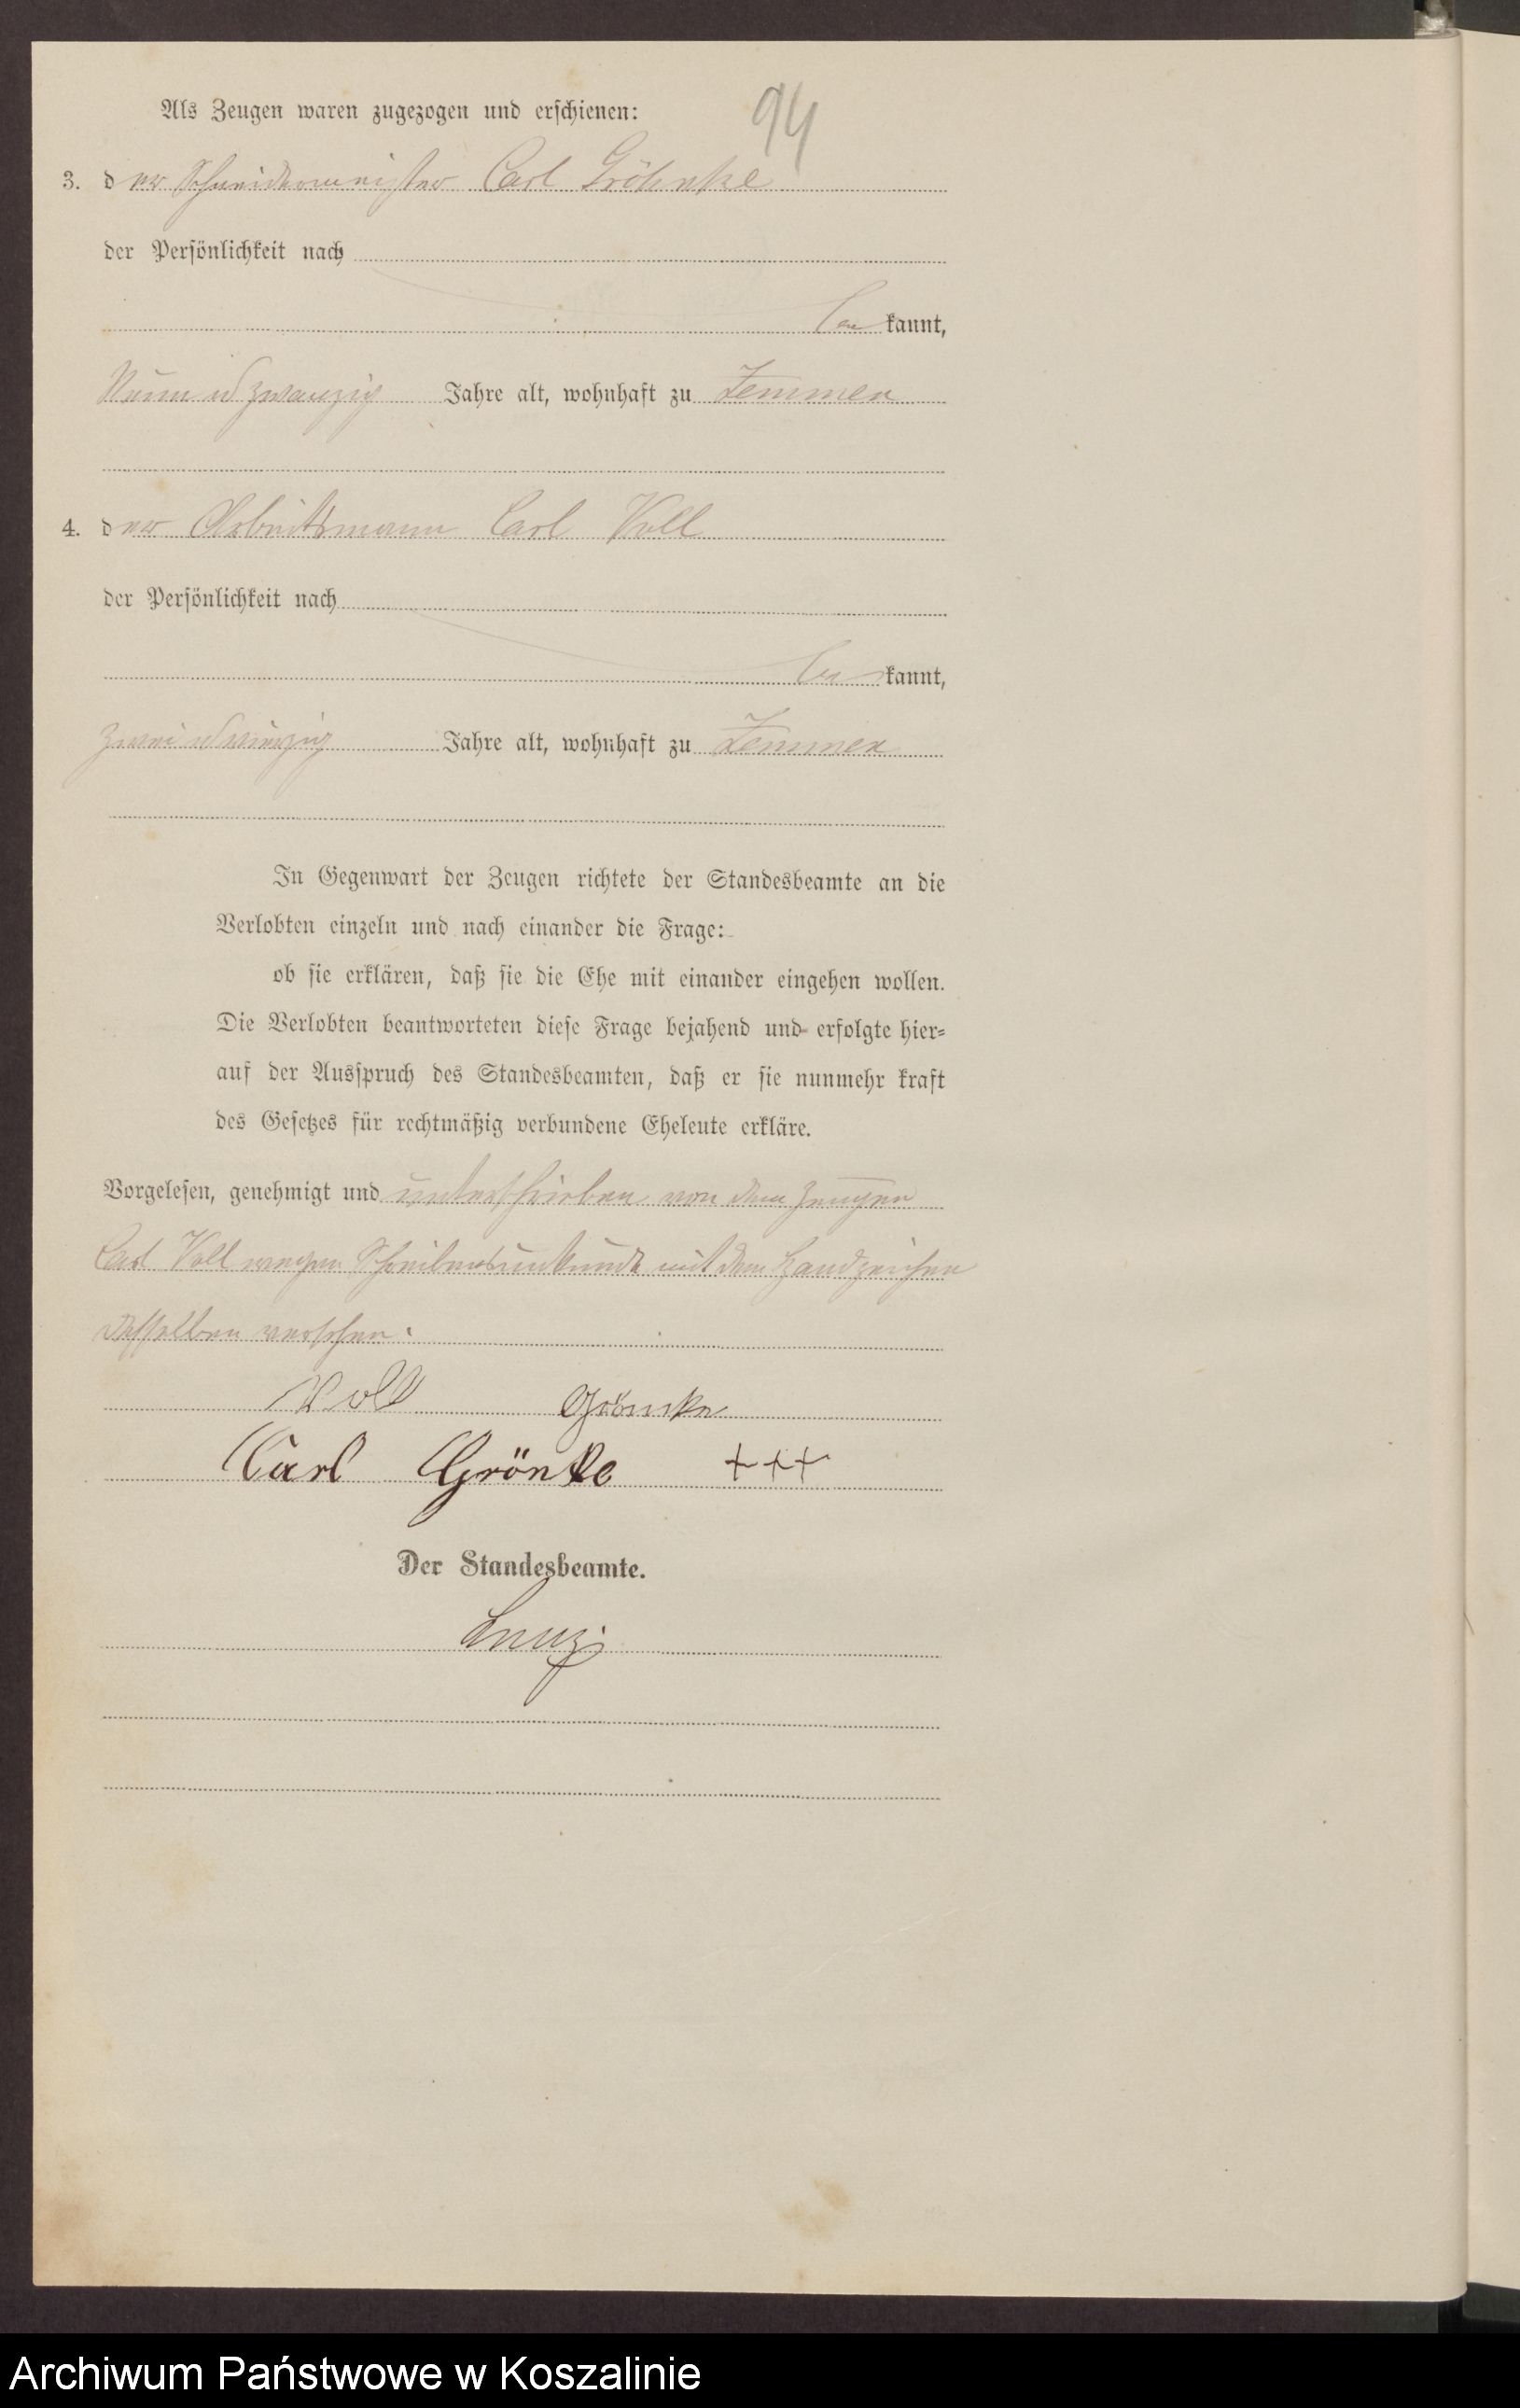 94
Als Zeugen waren zugezogen und erschienen:
3. der Schneidermeister Carl Gröhnke
der Persönlichkeit nach
be kannt,
Neun u zwanzig Jahre alt, wohnhaft zu Zemmen
4. der Arbeitsmann Carl Voll
der Persönlichkeit nach
be kannt,
zwei u Jahre alt, wohnhaft zu Zemmen
In Gegenwart der Zeugen richtete der Standesbeamte an die
Verlobten einzeln und nach einander die Frage:
ob sie erklären, daß sie die Ehe mit einander eingehen wollen.
Die Verlobten beantworteten diese Frage bejahend und erfolgte hier-
auf der Ausspruch des Standesbeamten, daß er sie nunmehr kraft
des Gesetzes für rechtmäßig verbundene Eheleute erkläre.
Vorgelesen, genehmigt und unterschrieben von dem Zeugen
Carl Voll wegen Schreibensunkunde mit dem Handzeichen
desselben versehen.
Voll Grönke
Carl Grönke +++
Der Standesbeamte.
Archiwum Państwowe w Koszalinie